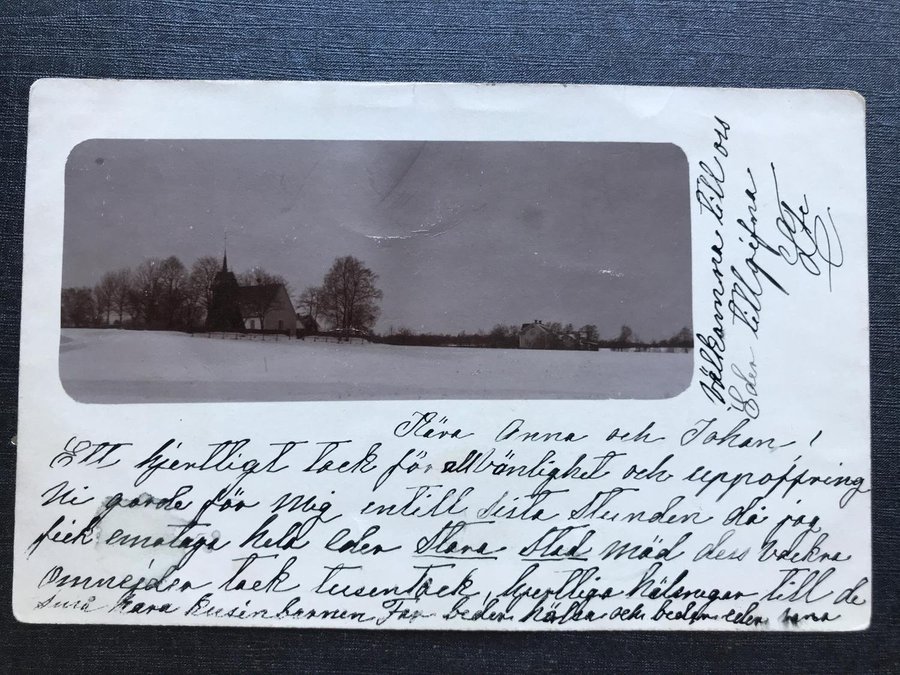 Kära Anna och Johan!
Ett hjertligt tack för all vänlighet och uppoffring
Ni gorde för mig entill sista stunden då jag
fick emotaga hela eder Stora Stad mäd dess vackra
omnejder tack tusen tack, hjertliga hälsnigar till de
små kära kusin barnen Far beder hälsa och beder eder vara
Välkomna till oss
Eder tillgifna